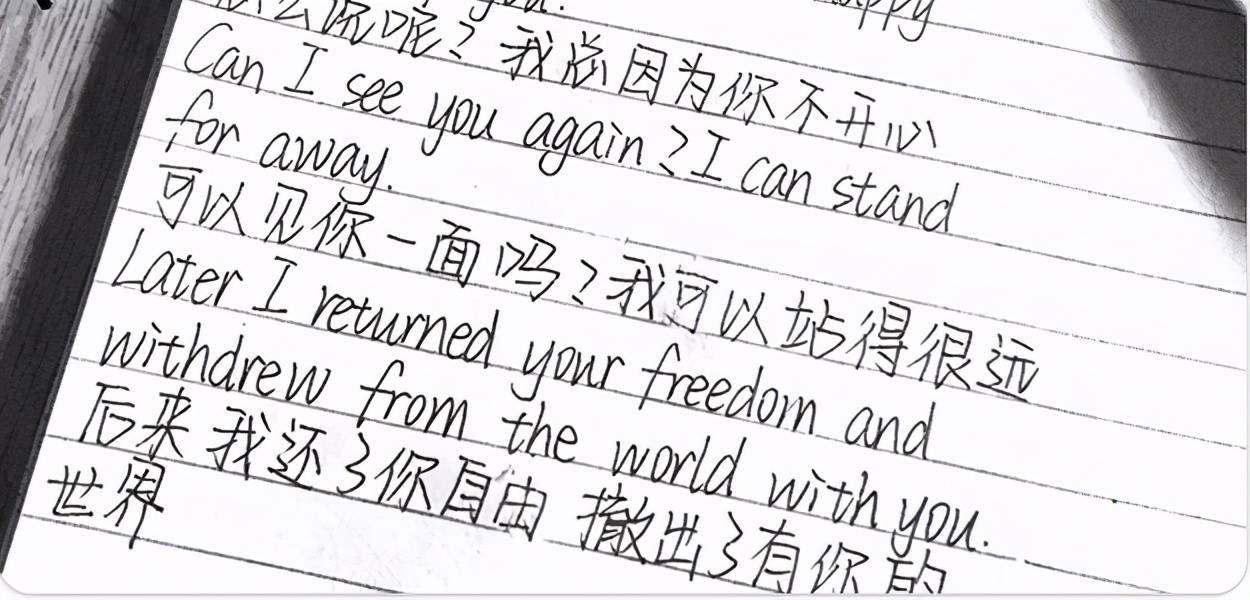 you. appy
么说呢?我总因为你不开心
Can I see you again?I can stand
for away.
可以见你一面吗?我可以站得很远
Later I returned your freedom and
withdrew from the world with you.
后来我还了你自由 撤出了有你的
世界